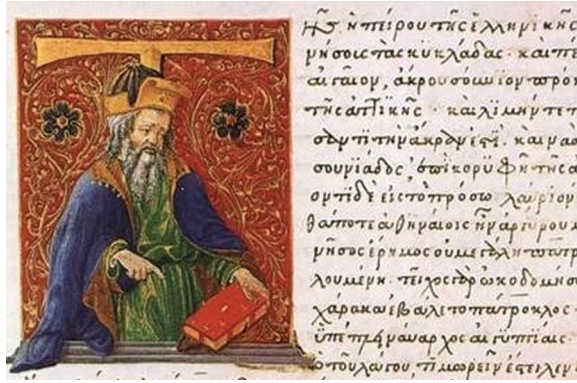 Τ
ῆς ἠπείρου τῆς ἑλληνικῆς
νήσους τὰς κυκλάδας· καὶ πέ
αἰγαῖον, ἄκρον σούνιον πρό
τῆς ἀττικῆς· καὶ λιμήν τε π
τὴν ἄκραν ἐστί· καὶ ναὸ
σουνιάδος, ἐπὶ κορυφῇ τῆς ἄ
οντι δὲ εἰς τὸ πρόσω λαύριον
θα ποτε ἀθηναίοις ἦν ἀργύρου μ
νῆσος ἔρημος οὐ μεγάλη πατρ
λουμένη· τεῖχος ᾠκοδομήσ
χάρακα ἐβάλετο πάτροκλος
ναύαρχος αἰγυπτίαις
ὁ τοῦ λάγου, τιμωρεῖν ἔστειλεν